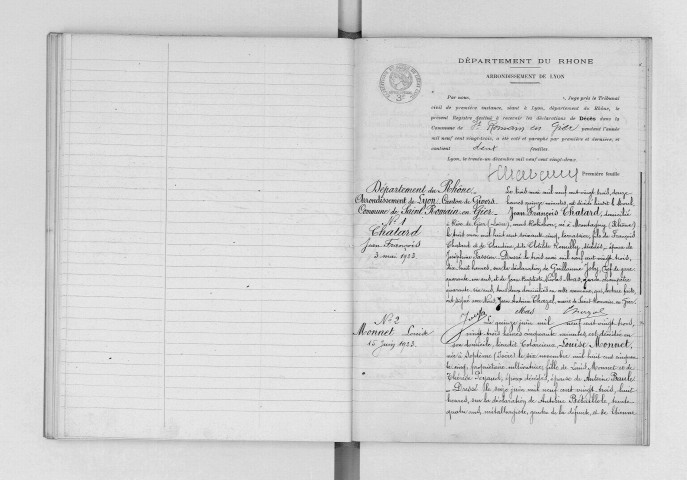 DÉPARTEMENT DU RHONE
ARRONDISSEMENT DE LYON
Par nous, Juge près le Tribunal
civil de première instance, séant à Lyon, département du Rhône, le
présent Registre destiné à recevoir les déclarations de Décès dans la
Commune de St Romain en Gier pendant l'année
mil neuf cent vingt-trois, a été coté et paraphé par première et dernière, et
contient feuilles
Lyon, le trente-un décembre mil neuf cent vingt-deux.
Première feuille
Département du Rhône
Arrondissement de Lyon - Canton de Givors
Commune de Saint Romain en Gier
No 1
Chatard
Jean François
3 mai 1923
Le trois mai mil neuf cent vingt trois, onze
heures quinze minutes, est décédé
Jean François Chatard, domicilié
à Rive de Gier (Loire), né à Montagny (Rhône)
le huit mai mil huit cent soixante cinq, fils de François
Chatard et de Claudine Clotilde Romilly, décédés, époux de
Joséphine Dressé le trois mai mil neuf cent vingt trois,
dix huit heures, sur la déclaration de Guillaume Joly, Chef de gare
quarante un ans, et de Jean Baptiste Mas, garde champêtre
quarante six ans, tous deux domiciliés en cette commune, qui, lecture faite,
ont signé avec Nous, Jean Antoine Chazal, maire de Saint Romain en Gier.
Joly Mas Chazal
No 2
Monnet Louise
15 Juin 1923
Le quinze juin mil neuf cent vingt trois,
vingt trois heures cinquante minutes, est décédée en
son domicile, Louise Monnet,
née à Septème (Isère) le six novembre mil huit cent cinquante
cinq, propriétaire cultivatrice, fille de Monnet et de
époux décédés, épouse de Antoine
Dressé le seize juin mil neuf cent vingt trois, huit
heures, sur la déclaration de Antoine trente
quatre ans, métallurgiste, gendre de la défunte, et de Etienne